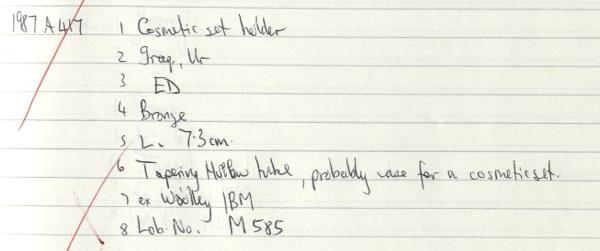 1987 A 417 1 Cosmetic set holder
2 Iraq, Ur
3 ED
4 Bronze
5 L. 7.3cm.
6 Tapering Hollow tube, probably case for a cosmetic set.
7 ex Woolley / BM
8 Lab. No. M 585